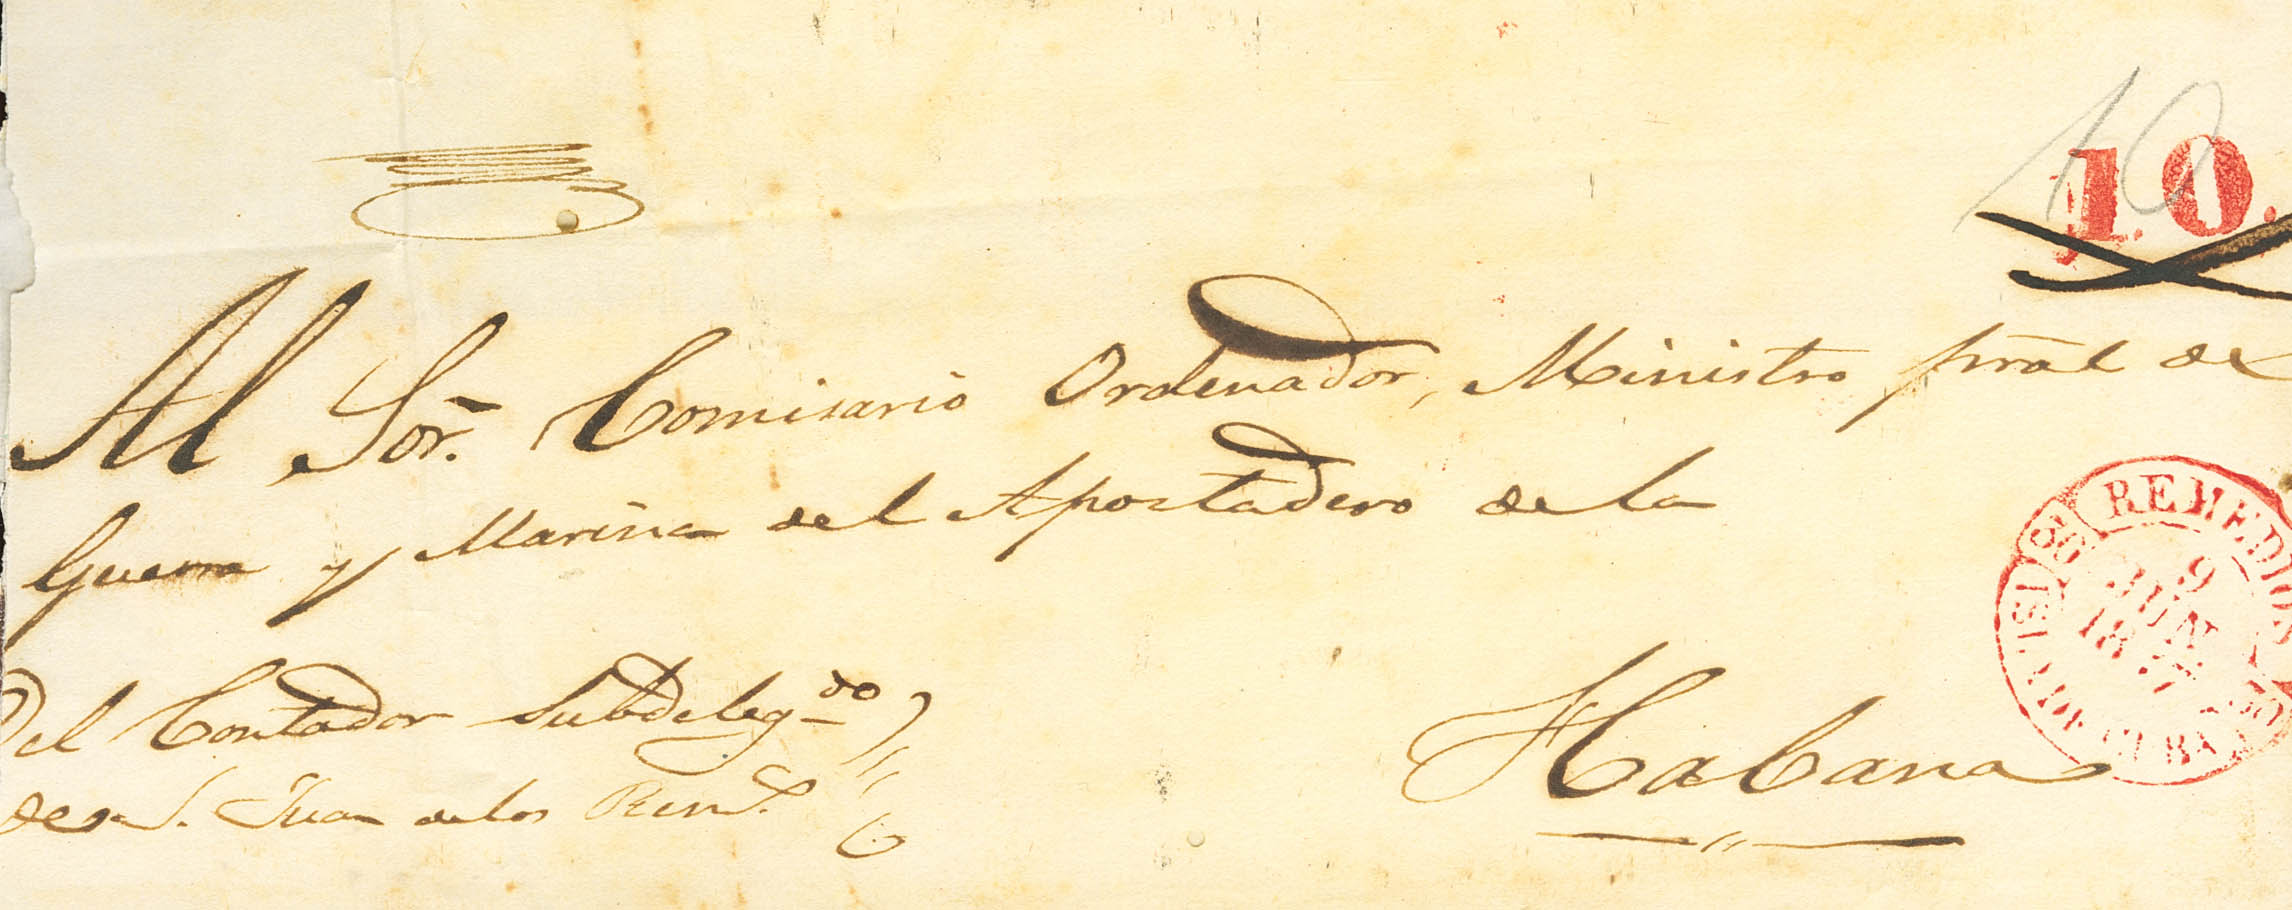 10
10.
Al Sor. Comisario Ordenador, Ministro pral de
Guerra y Marina del Apostadero de la
Habana
Del Contador Subdelegdo
de S. Juan de los Rems.
REMEDIOS
9
JUN
18
ISLA DE CUBA